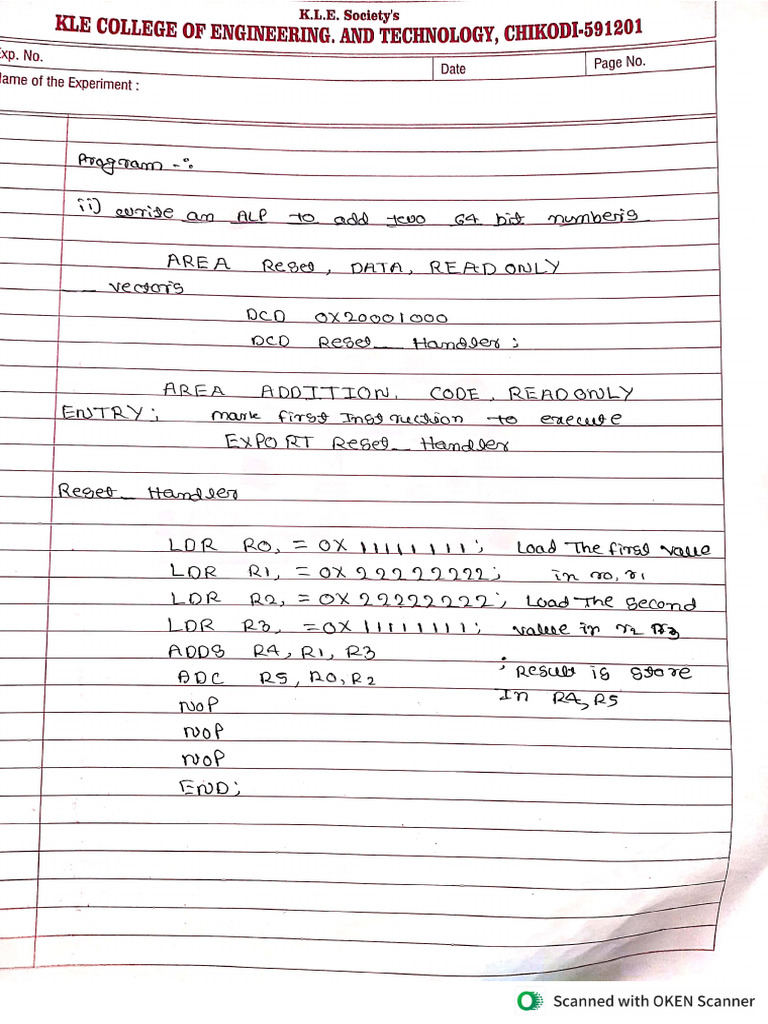 K.L.E. Society's
KLE COLLEGE OF ENGINEERING. AND TECHNOLOGY, CHIKODI-591201
Exp. No.
Date
Page No.
Name of the Experiment :
Program -:
ii) write an ALP to add two 64 bit numbers
AREA Reset, DATA, READONLY
__ vectors
DCD 0X20001000
DCD Reset_ Handler;
AREA ADDITION, CODE, READONLY
ENTRY; mark first Instruction to execute
EXPORT Reset_ Handler
Reset_ Handler
LDR R0, = 0X 11111111; Load The first value
LDR R1, = 0X 22222222; in r0, r1
LDR R2, = 0X 22222222; Load The second
LDR R3, = 0X 11111111; value in r2 r3
ADDS R4, R1, R3
ADC R5, R0, R2 ; Result is store
NOP In R4, R5
NOP
NOP
END;
Scanned with OKEN Scanner